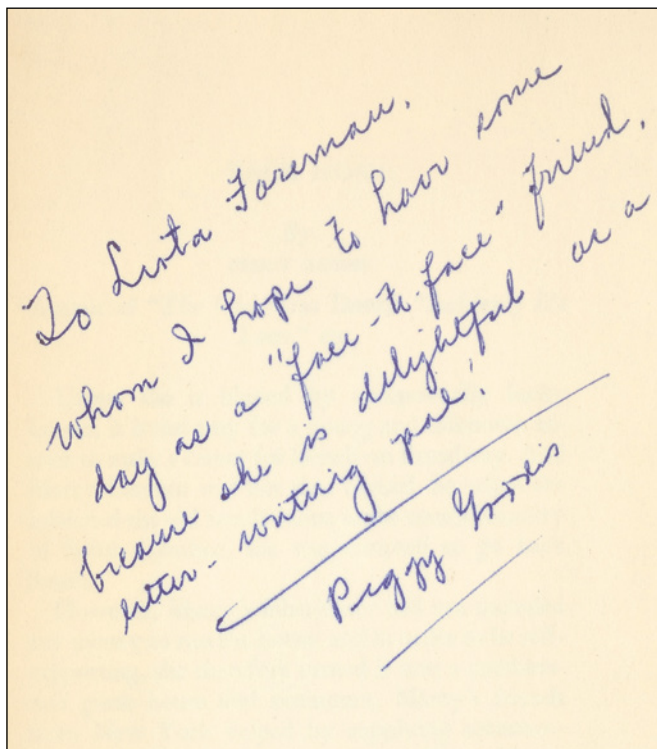 To Lista Foreman,
whom I hope to have some
day as a "face-to-face" friend,
because she is delightful as a
letter-writing pal!
Peggy